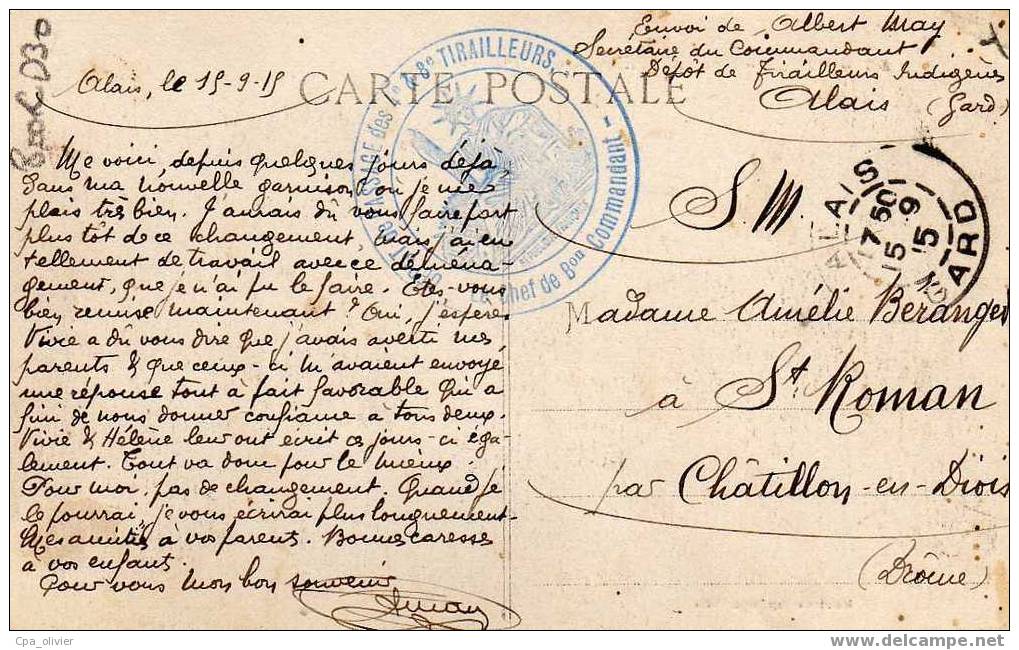 Envoi de Albert May
Secrétaire du Commandant
Dépôt de Tirailleurs Indigènes
Alais (Gard)
Alais, le 15-9-15
CARTE POSTALE
8e TIRAILLEURS
Le Chef de Bon Commandant
Me voici, depuis quelques jours déjà,
dans ma nouvelle garnison où je me
plais très bien. J'aurais dû vous faire part
plus tôt de ce changement, mais j'ai eu
tellement de travail avec ce déména-
gement, que je n'ai pu le faire. Etes-vous
bien remise maintenant? Oui, j'espère.
Vivie a dû vous dire que j'avais averti mes
parents & que ceux-ci m'avaient envoyé
une réponse tout à fait favorable qui a
fini de nous donner confiance à tous deux.
Vivie & Hélène leur ont écrit ces jours-ci éga-
lement. Tout va donc pour le mieux.
Pour moi, pas de changement. Quand je
le pourrai, je vous écrirai plus longuement.
Mes amitiés à vos parents. Bonnes caresses
à vos enfants.
Pour vous mon bon souvenir
AMay
S. M.
ALAIS
17 50
15 9
15
GARD
Madame Amélie Beranger
à St Roman
par Châtillon-en-Diois
(Drôme)
Cpa_olivier
http://www.delcampe.net